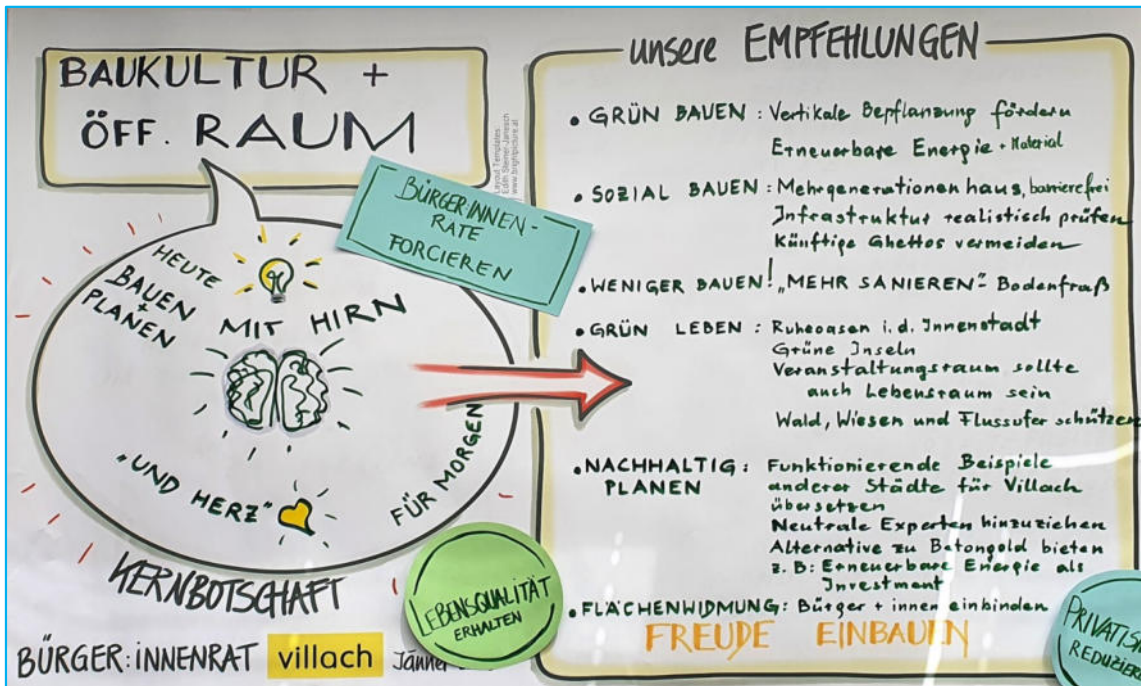 BAUKULTUR +
ÖFF. RAUM
Layout Templates:
www.brightpicture.at
BÜRGER:INNEN-
RÄTE
FORCIEREN
HEUTE
BAUEN
+
PLANEN
MIT HIRN
„UND HERZ"
FÜR MORGEN
KERNBOTSCHAFT
LEBENSQUALITÄT
ERHALTEN
BÜRGER:INNENRAT villach Jänner
unsere EMPFEHLUNGEN
• GRÜN BAUEN : Vertikale Bepflanzung fördern
Erneuerbare Energie + Material
• SOZIAL BAUEN : Mehrgenerationenhaus, barrierefrei
Infrastruktur realistisch prüfen
Künftige Ghettos vermeiden
• WENIGER BAUEN! „MEHR SANIEREN" - Bodenfraß
• GRÜN LEBEN : Ruheoasen i. d. Innenstadt
Grüne Inseln
Veranstaltungsraum sollte
auch Lebensraum sein
Wald, Wiesen und Flussufer schützen
• NACHHALTIG : Funktionierende Beispiele
PLANEN anderer Städte für Villach
übersetzen
Neutrale Experten hinzuziehen
Alternative zu Betongold bieten
z. B: Erneuerbare Energie als
Investment
• FLÄCHENWIDMUNG : Bürger + innen einbinden
FREUDE EINBAUEN
REDUZIERE